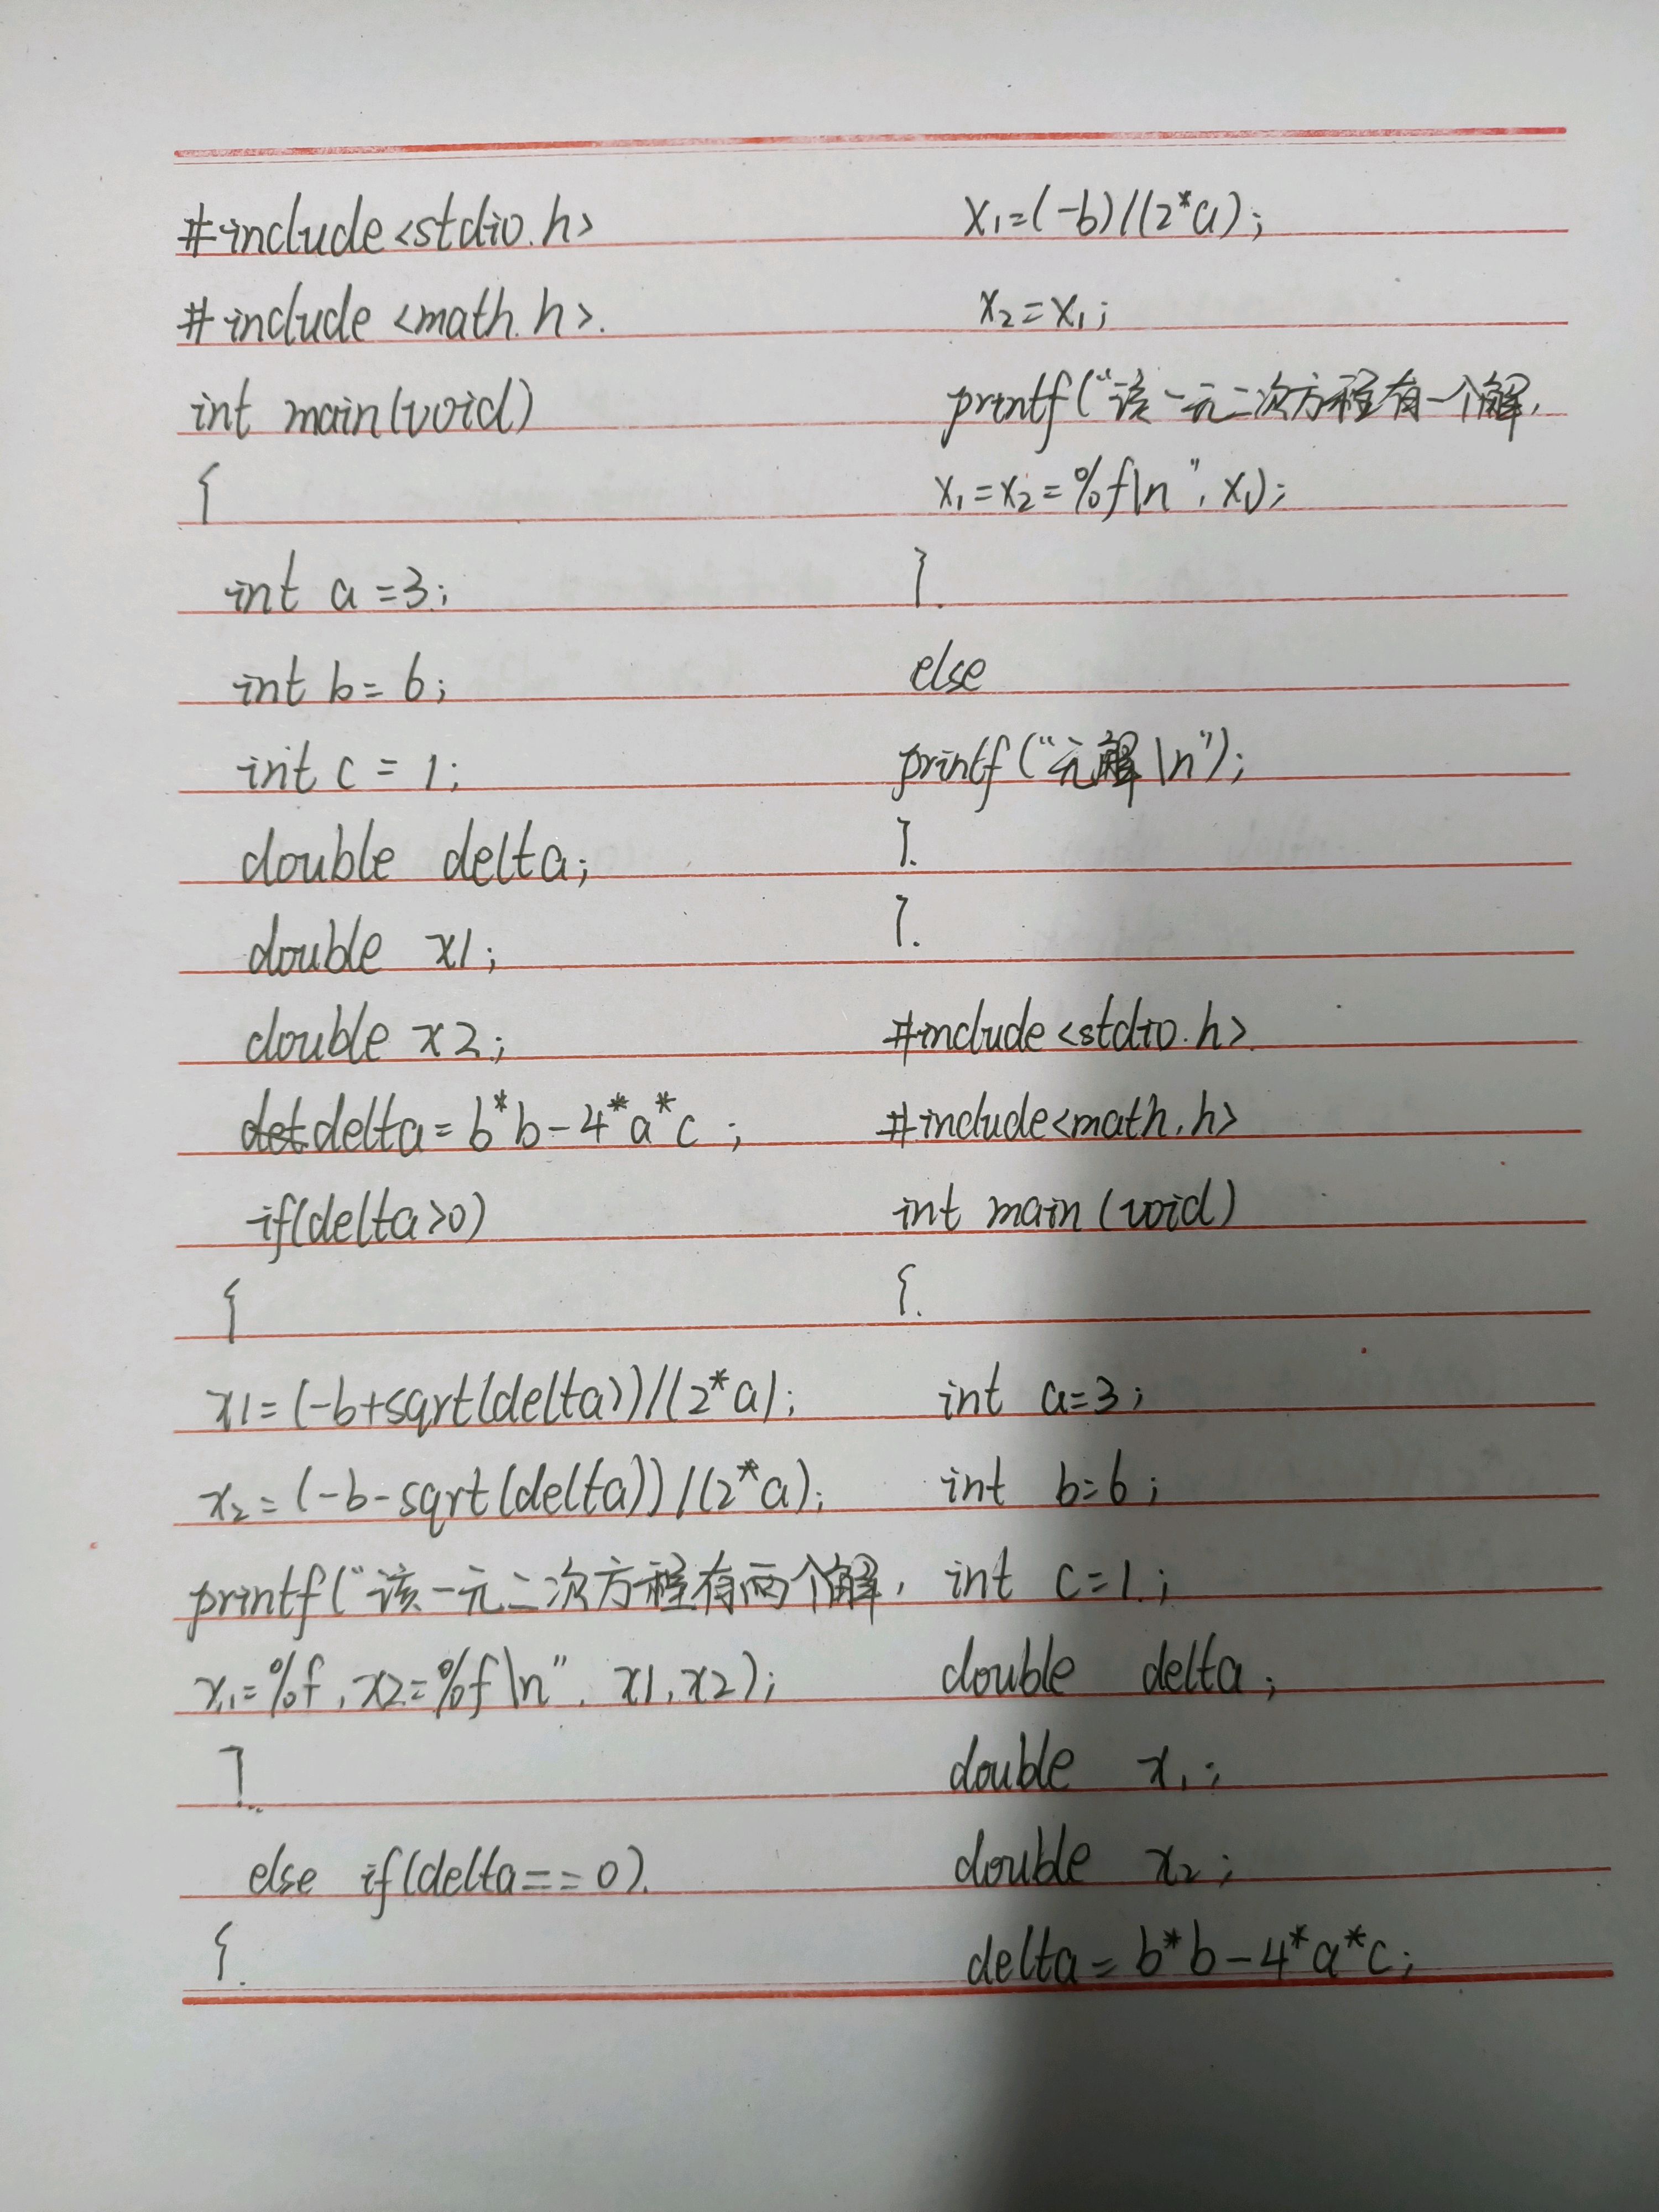 #include<stdio.h>
#include <math.h>.
int main(void)
{
int a=3;
int b=6;
int c=1;
double delta;
double x1;
double x2;
det delta=b*b-4*a*c;
if(delta>0)
{
x1=(-b+sqrt(delta))/(2*a);
x2=(-b-sqrt(delta))/(2*a);
printf("该一元二次方程有两个解,
x1=%f,x2=%f\n", x1,x2);
}
else if(delta==0).
{.
x1=(-b)/(2*a);
x2=x1;
printf("该一元二次方程有一个解,
x1=x2=%f\n",x1);
}.
else
printf("元解\n");
}.
}.
#include<stdio.h>
#include<math.h>
int main(void)
{.
int a=3;
int b=6;
int c=1;
double delta;
double x1;
double x2;
delta=b*b-4*a*c;